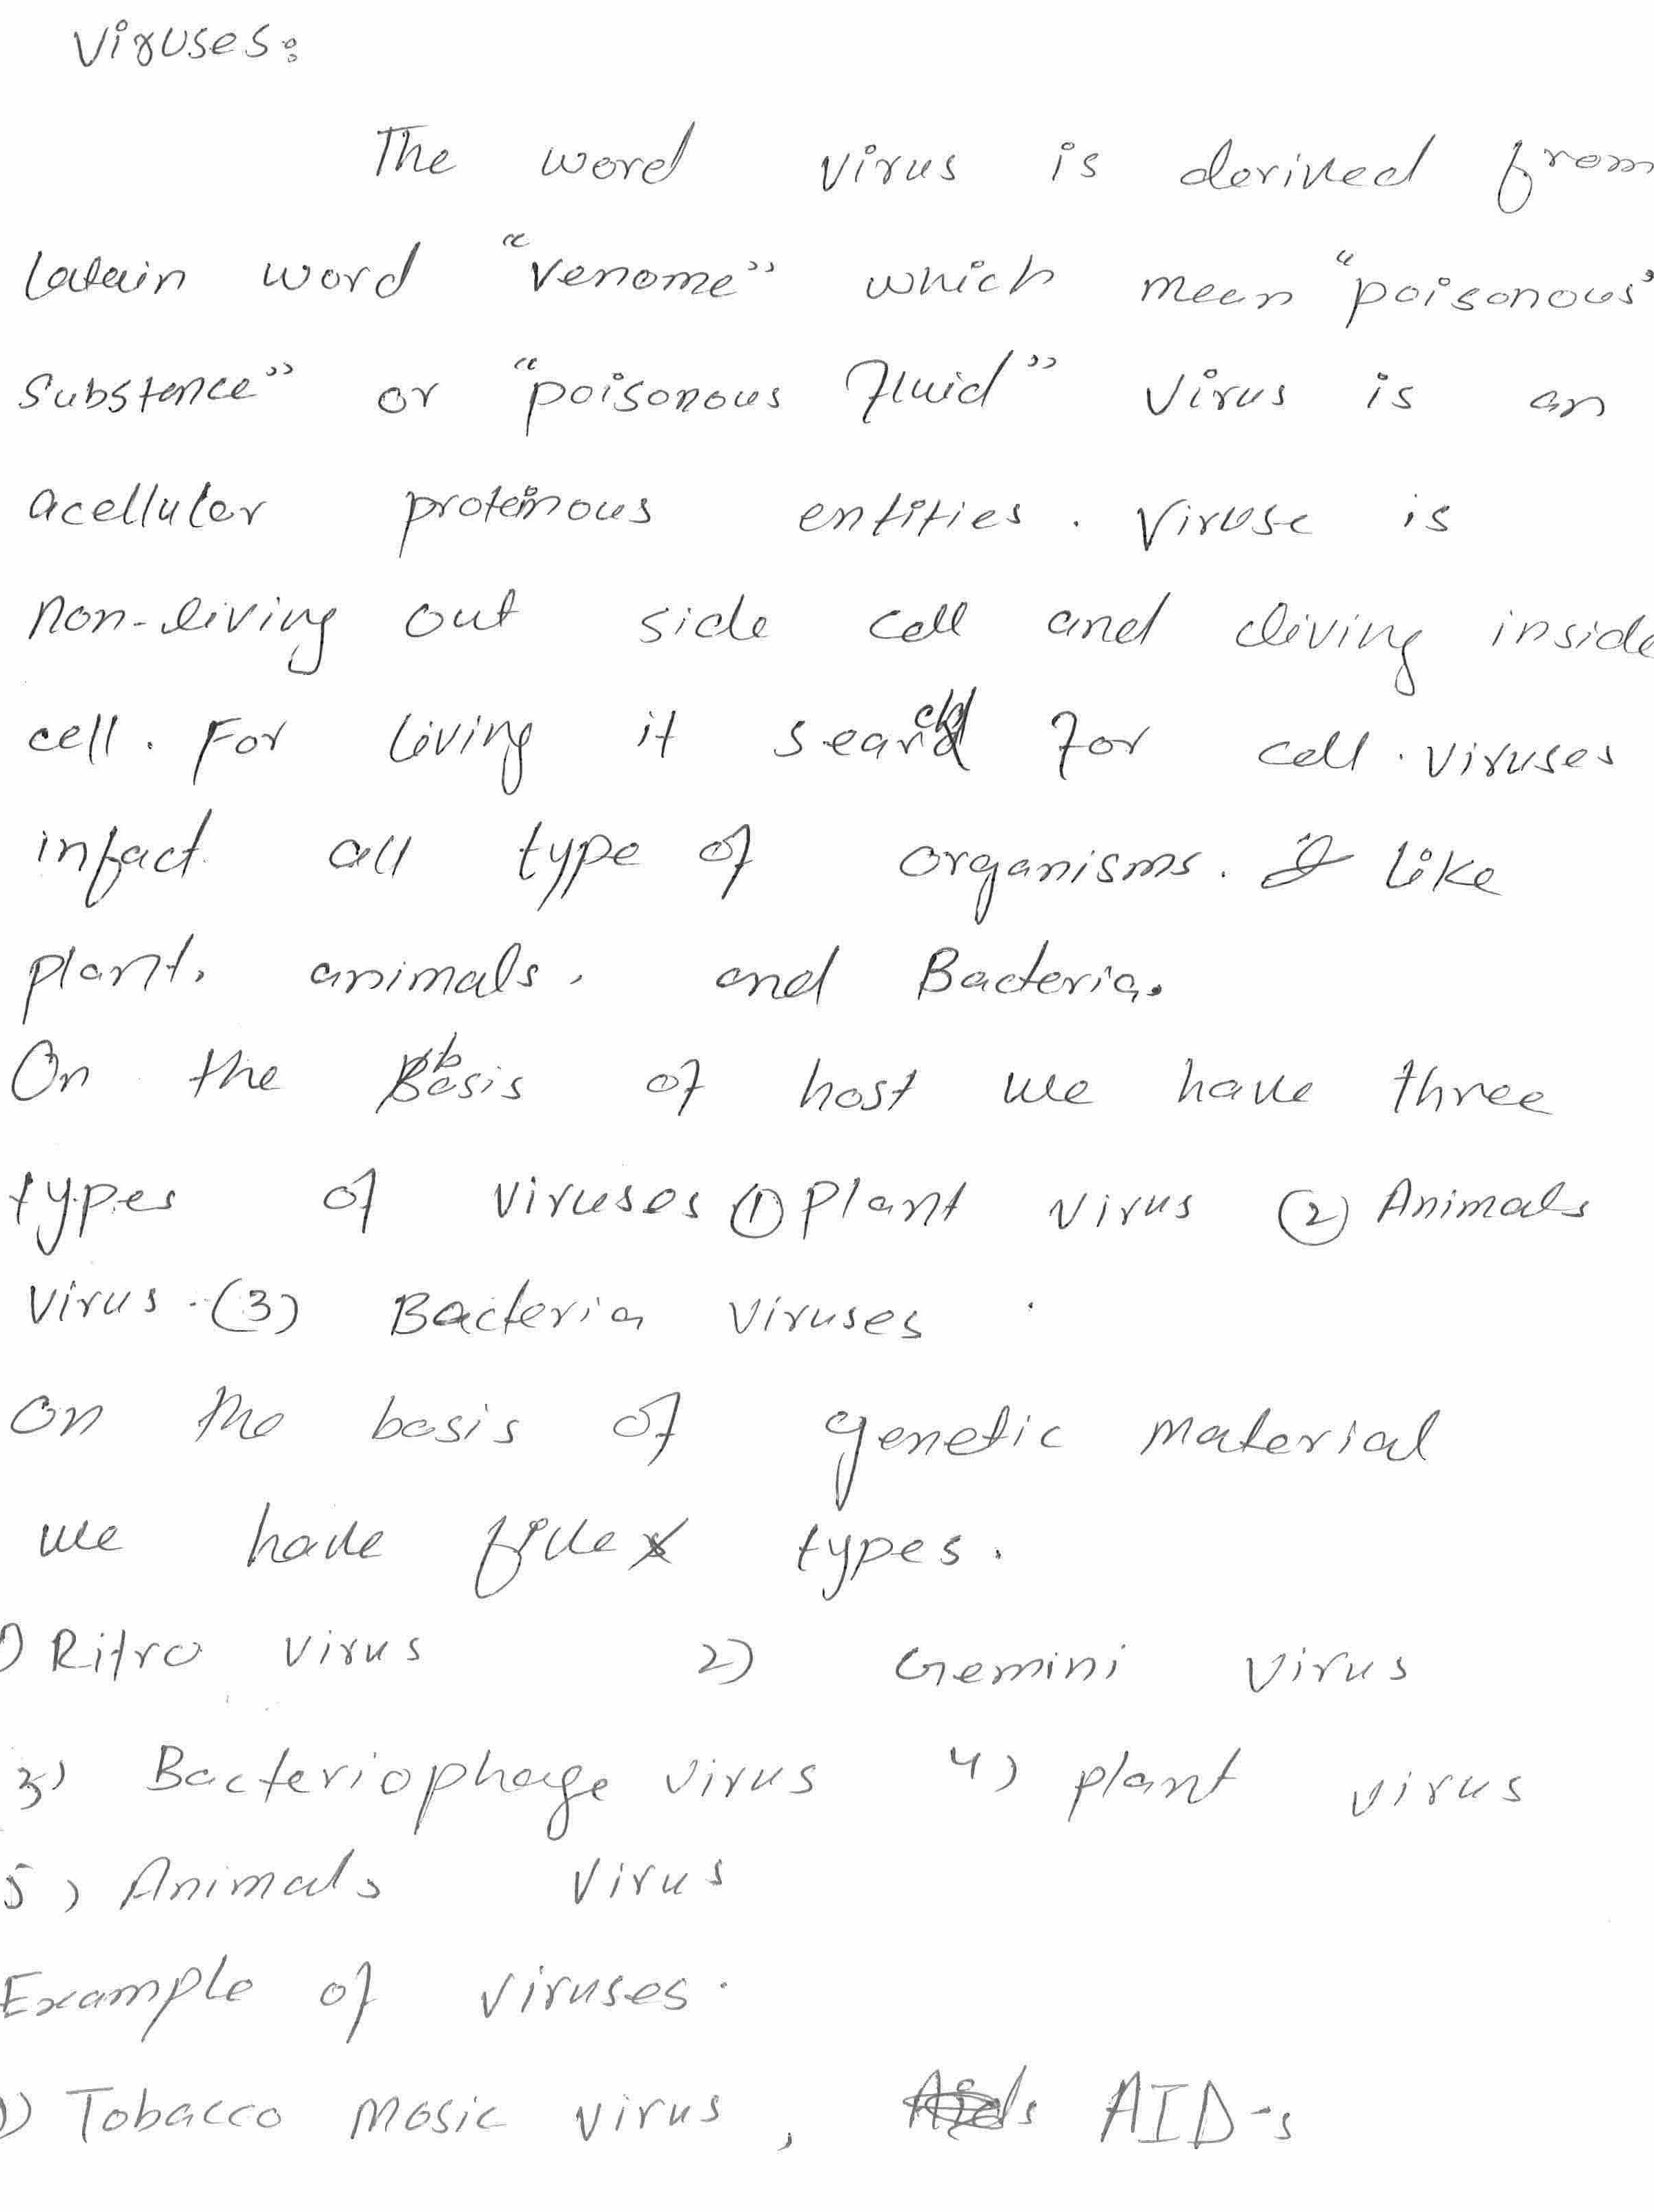 Viruses:
The word virus is derived from
latain word "venome" which meen "poisonous"
substance" or "poisonous fluid" virus is an
acelluler proteinous entities. Viruse is
non-living out side cell and living inside
cell. For living it search for cell. viruses
infact all type of organisms. like
plant, animals, and Bacteria.
On the basis of host we have three
types of viruses ① plant virus ② Animals
virus. (3) Bacteria viruses
on the basis of genetic material
we have five types.
1) Ritro virus 2) Gemini virus
3) Bacteriophage virus 4) plant virus
5) Animals virus
Example of viruses.
1) Tobacco mosic virus, AID-s